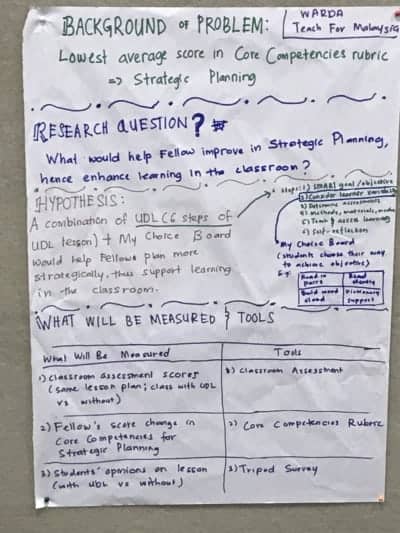 BACKGROUND OF PROBLEM:
WARDA
Teach For Malaysia
Lowest average score in Core Competencies rubric
=> Strategic Planning
RESEARCH QUESTION?
What would help Fellow improve in Strategic Planning,
hence enhance learning in the classroom?
HYPOTHESIS:
A combination of UDL (6 steps of
UDL lesson) + My Choice Board
would help Fellows plan more
strategically, thus support learning
in the classroom.
Steps: 1) SMART goal/objective
2) Consider learner variability
3) Determine assessments
4) Methods, materials, media
5) Teach & assess learning
6) Self-reflection
*My Choice Board
(students choose their way
to achieve objectives)
Read in pairs
Read silently
Build word cloud
Dictionary support
WHAT WILL BE MEASURED & TOOLS
What Will Be Measured
Tools
1) Classroom assessment scores
(same lesson plan; class with UDL
vs without)
1) Classroom Assessment
2) Fellow's score change in
Core Competencies for
Strategic Planning
2) Core Competencies Rubric
3) Students' opinions on lesson
(with UDL vs without)
3) Tripod Survey